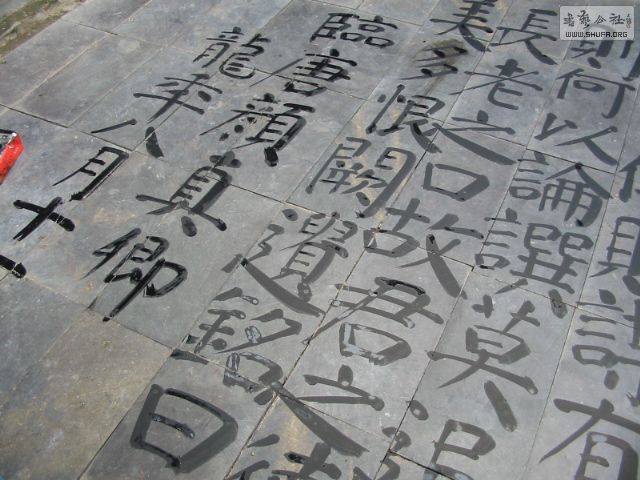 有
則何以論譔莫
長老之口故君之德
美多恨闕遺銘曰
臨唐顏真卿
龍年八月十一
书艺公社
WWW.SHUFA.ORG